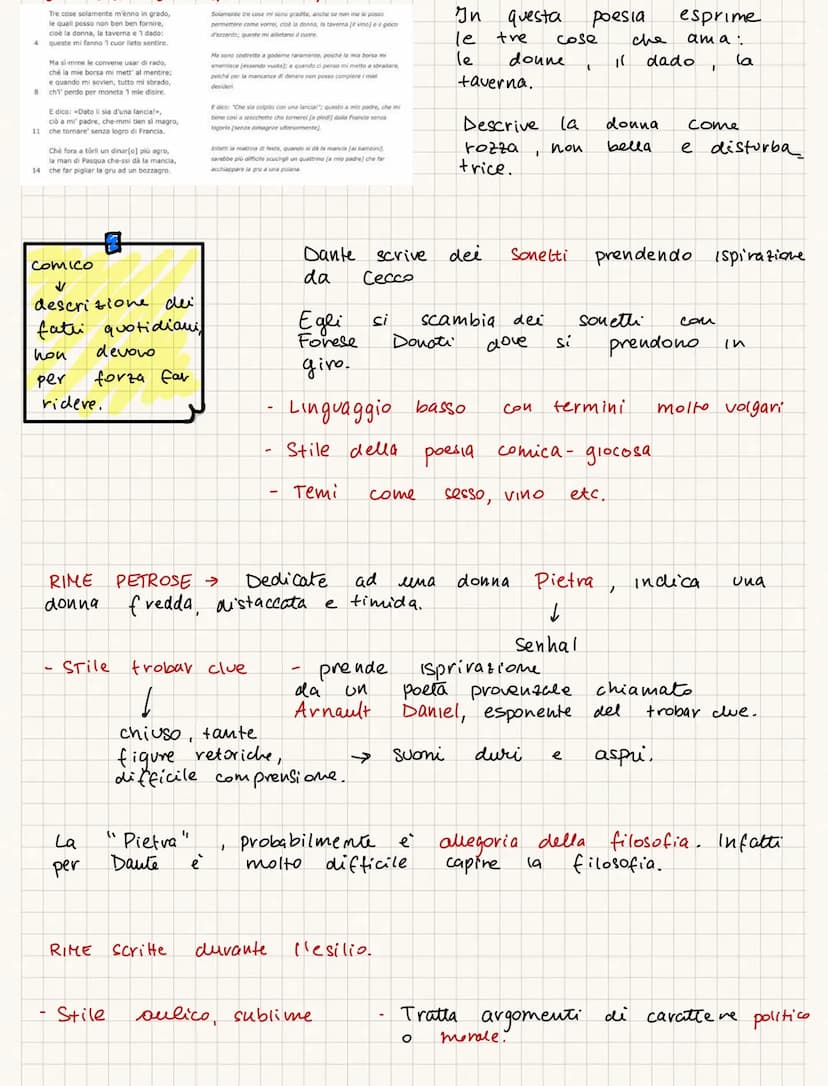 Tre cose solamente m'ènno in grado,
le quali posso non ben ben fornire,
cioè la donna, la taverna e 'l dado:
4 queste mi fanno 'l cuor lieto sentire.
Ma sì mme le convene usar di rado,
ché la mie borsa mi mett' al mentire;
e quando mi sovien, tutto mi sbrado,
8 ch'i' perdo per moneta 'l mie disire.
E dico: «Dato li sia d'una lancia!»,
ciò a mi' padre, che-mmi tien sì magro,
11 che tornare' senza logro di Francia.
Ché fora a tôrli un dinar[o] più agro,
la man di Pasqua che-ssi dà la mancia,
14 che far pigliar la gru ad un bozzagro.
Solamente tre cose mi sono gradite, anche se non me le posso
permettere come vorrei, cioè la donna, la taverna [il vino] e il gioco
d'azzardo; queste mi allietano il cuore.
Ma sono costretto a goderne raramente, poiché la mia borsa mi
smentisce [essendo vuota]; e quando ci penso mi metto a sbraitare,
poiché per la mancanza di denaro non posso compiere i miei
desideri.
E dico: "Che sia colpito con una lancia!"; questo a mio padre, che mi
tiene così a stecchetto che tornerei [a piedi] dalla Francia senza
logorio [senza dimagrire ulteriormente].
Infatti la mattina di festa, quando si dà la mancia [ai bambini],
sarebbe più difficile scucirgli un quattrino [a mio padre] che far
acchiappare la gru a una poiana.
In questa poesia esprime
le tre cose che ama:
le donne, il dado, la
taverna.
Descrive la donna come
rozza, non bella e disturba
trice.
comico
↓
descrizione dei
fatti quotidiani,
non devono
per forza far
ridere.
Dante scrive dei Sonetti prendendo ispirazione
da Cecco
Egli si scambia dei sonetti con
Forese Donati dove si prendono in
giro.
- Linguaggio basso con termini molto volgari
- Stile della poesia comica-giocosa
- Temi come sesso, vino etc.
RIME PETROSE → Dedicate ad una donna Pietra, indica una
donna fredda, distaccata e timida.
↓
Senhal
- Stile trobar clue
↓
chiuso, tante
figure retoriche,
difficile comprensione.
- prende isprirazione
da un poeta provenzale chiamato
Arnault Daniel, esponente del trobar clue.
→ suoni duri e aspri.
La "Pietra", probabilmente e' allegoria della filosofia. Infatti
per Dante è molto difficile capire la filosofia.
RIME scritte durante l'esilio.
- Stile aulico, sublime
- Tratta argomenti di carattere politico
o morale.